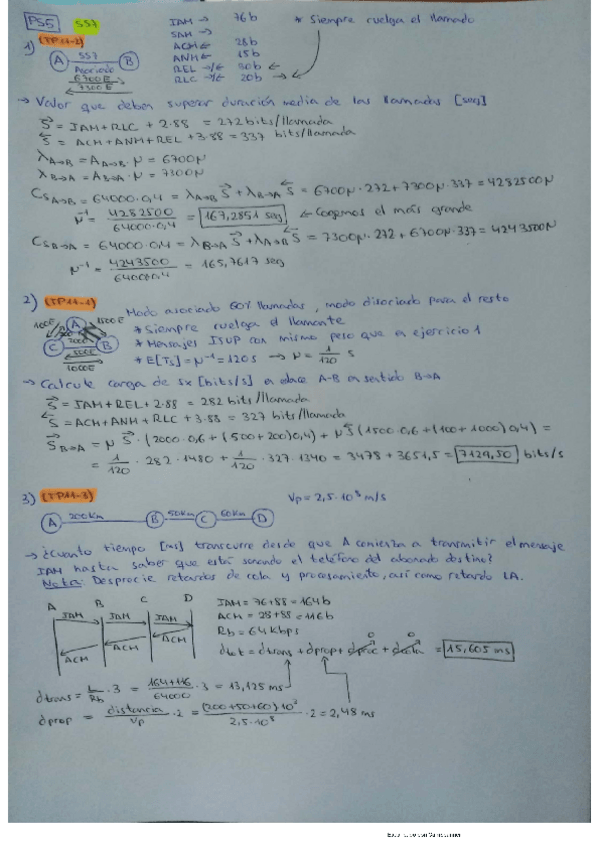 PS5 SS7
IAM → 76b * Siempre cuelga el llamado
SAM →
ACM ← 28b
ANM ← 15b
REL →/← 30b ←
RLC →/← 20b →
1) (TP11-2)
A SS7 B
Asociado
6700E
7300E
→ Valor que deben superar duración media de las llamadas [seg]
S⃗ = IAM + RLC + 2·88 = 272 bits/llamada
S⃖ = ACM + ANM + REL + 3·88 = 337 bits/llamada
λA→B = AA→B · μ = 6700μ
λB→A = AB→A · μ = 7300μ
CSA→B = 64000·0,4 = λA→B S⃗ + λB→A S⃖ = 6700μ·272 + 7300μ·337 = 4282500μ
μ⁻¹ = 4282500 / 64000·0,4 = 167,2851 seg ← Cogemos el más grande
CSB→A = 64000·0,4 = λB→A S⃗ + λA→B S⃖ = 7300μ·272 + 6700μ·337 = 4243500μ
μ⁻¹ = 4243500 / 64000·0,4 = 165,7617 seg
2) (TP11-1) Modo asociado 60% llamadas, modo disociado para el resto
A 1500E
C B
500E
1000E
* Siempre cuelga el llamante
* Mensajes ISUP con mismo peso que en ejercicio 1
* E[Ts] = μ⁻¹ = 120s → μ = 1/120 s
→ Calcule carga de sx [bits/s] en enlace A-B en sentido B→A
S⃗ = IAM + REL + 2·88 = 282 bits/llamada
S⃖ = ACM + ANM + RLC + 3·88 = 327 bits/llamada
S⃗B→A = μ S⃗ · (2000·0,6 + (500+200)0,4) + μ S⃖ (1500·0,6 + (100+1000)0,4) =
= 1/120 · 282 · 1480 + 1/120 · 327 · 1340 = 3478 + 3651,5 = 7129,50 bits/s
3) (TP11-3) Vp = 2,5·10⁸ m/s
A 200Km B 50Km C 60Km D
→ ¿Cuanto tiempo [ms] transcurre desde que A comienza a transmitir el mensaje
IAM hasta saber que está sonando el teléfono del abonado destino?
Nota: Desprecie retardos de cola y procesamiento, así como retardo LA.
A B C D
IAM IAM IAM
ACM ACM ACM
IAM = 76+88 = 164b
ACM = 28+88 = 116b
Rb = 64 kbps
dtot = dtrans + dprop + dproc 0 + dcola 0 = 15,605 ms
dtrans = L/Rb · 3 = 164+116 / 64000 · 3 = 13,125 ms
dprop = distancia / Vp · 2 = (200+50+60)·10³ / 2,5·10⁸ · 2 = 2,48 ms